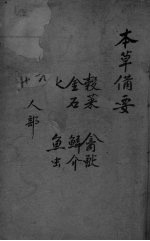 本草備要
穀菜 禽獸
金石 鱗介
七 魚虫
八 人部